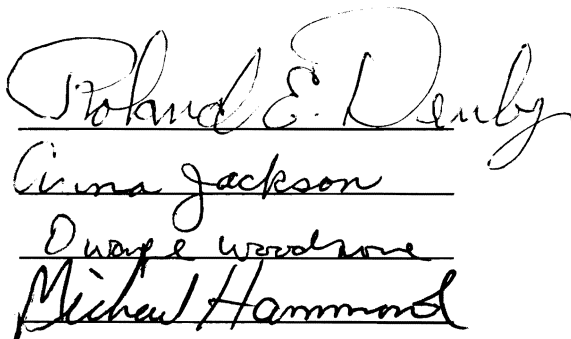 Roland E. Denby
Anna Jackson
Dwayne Woodsone
Michael Hammond